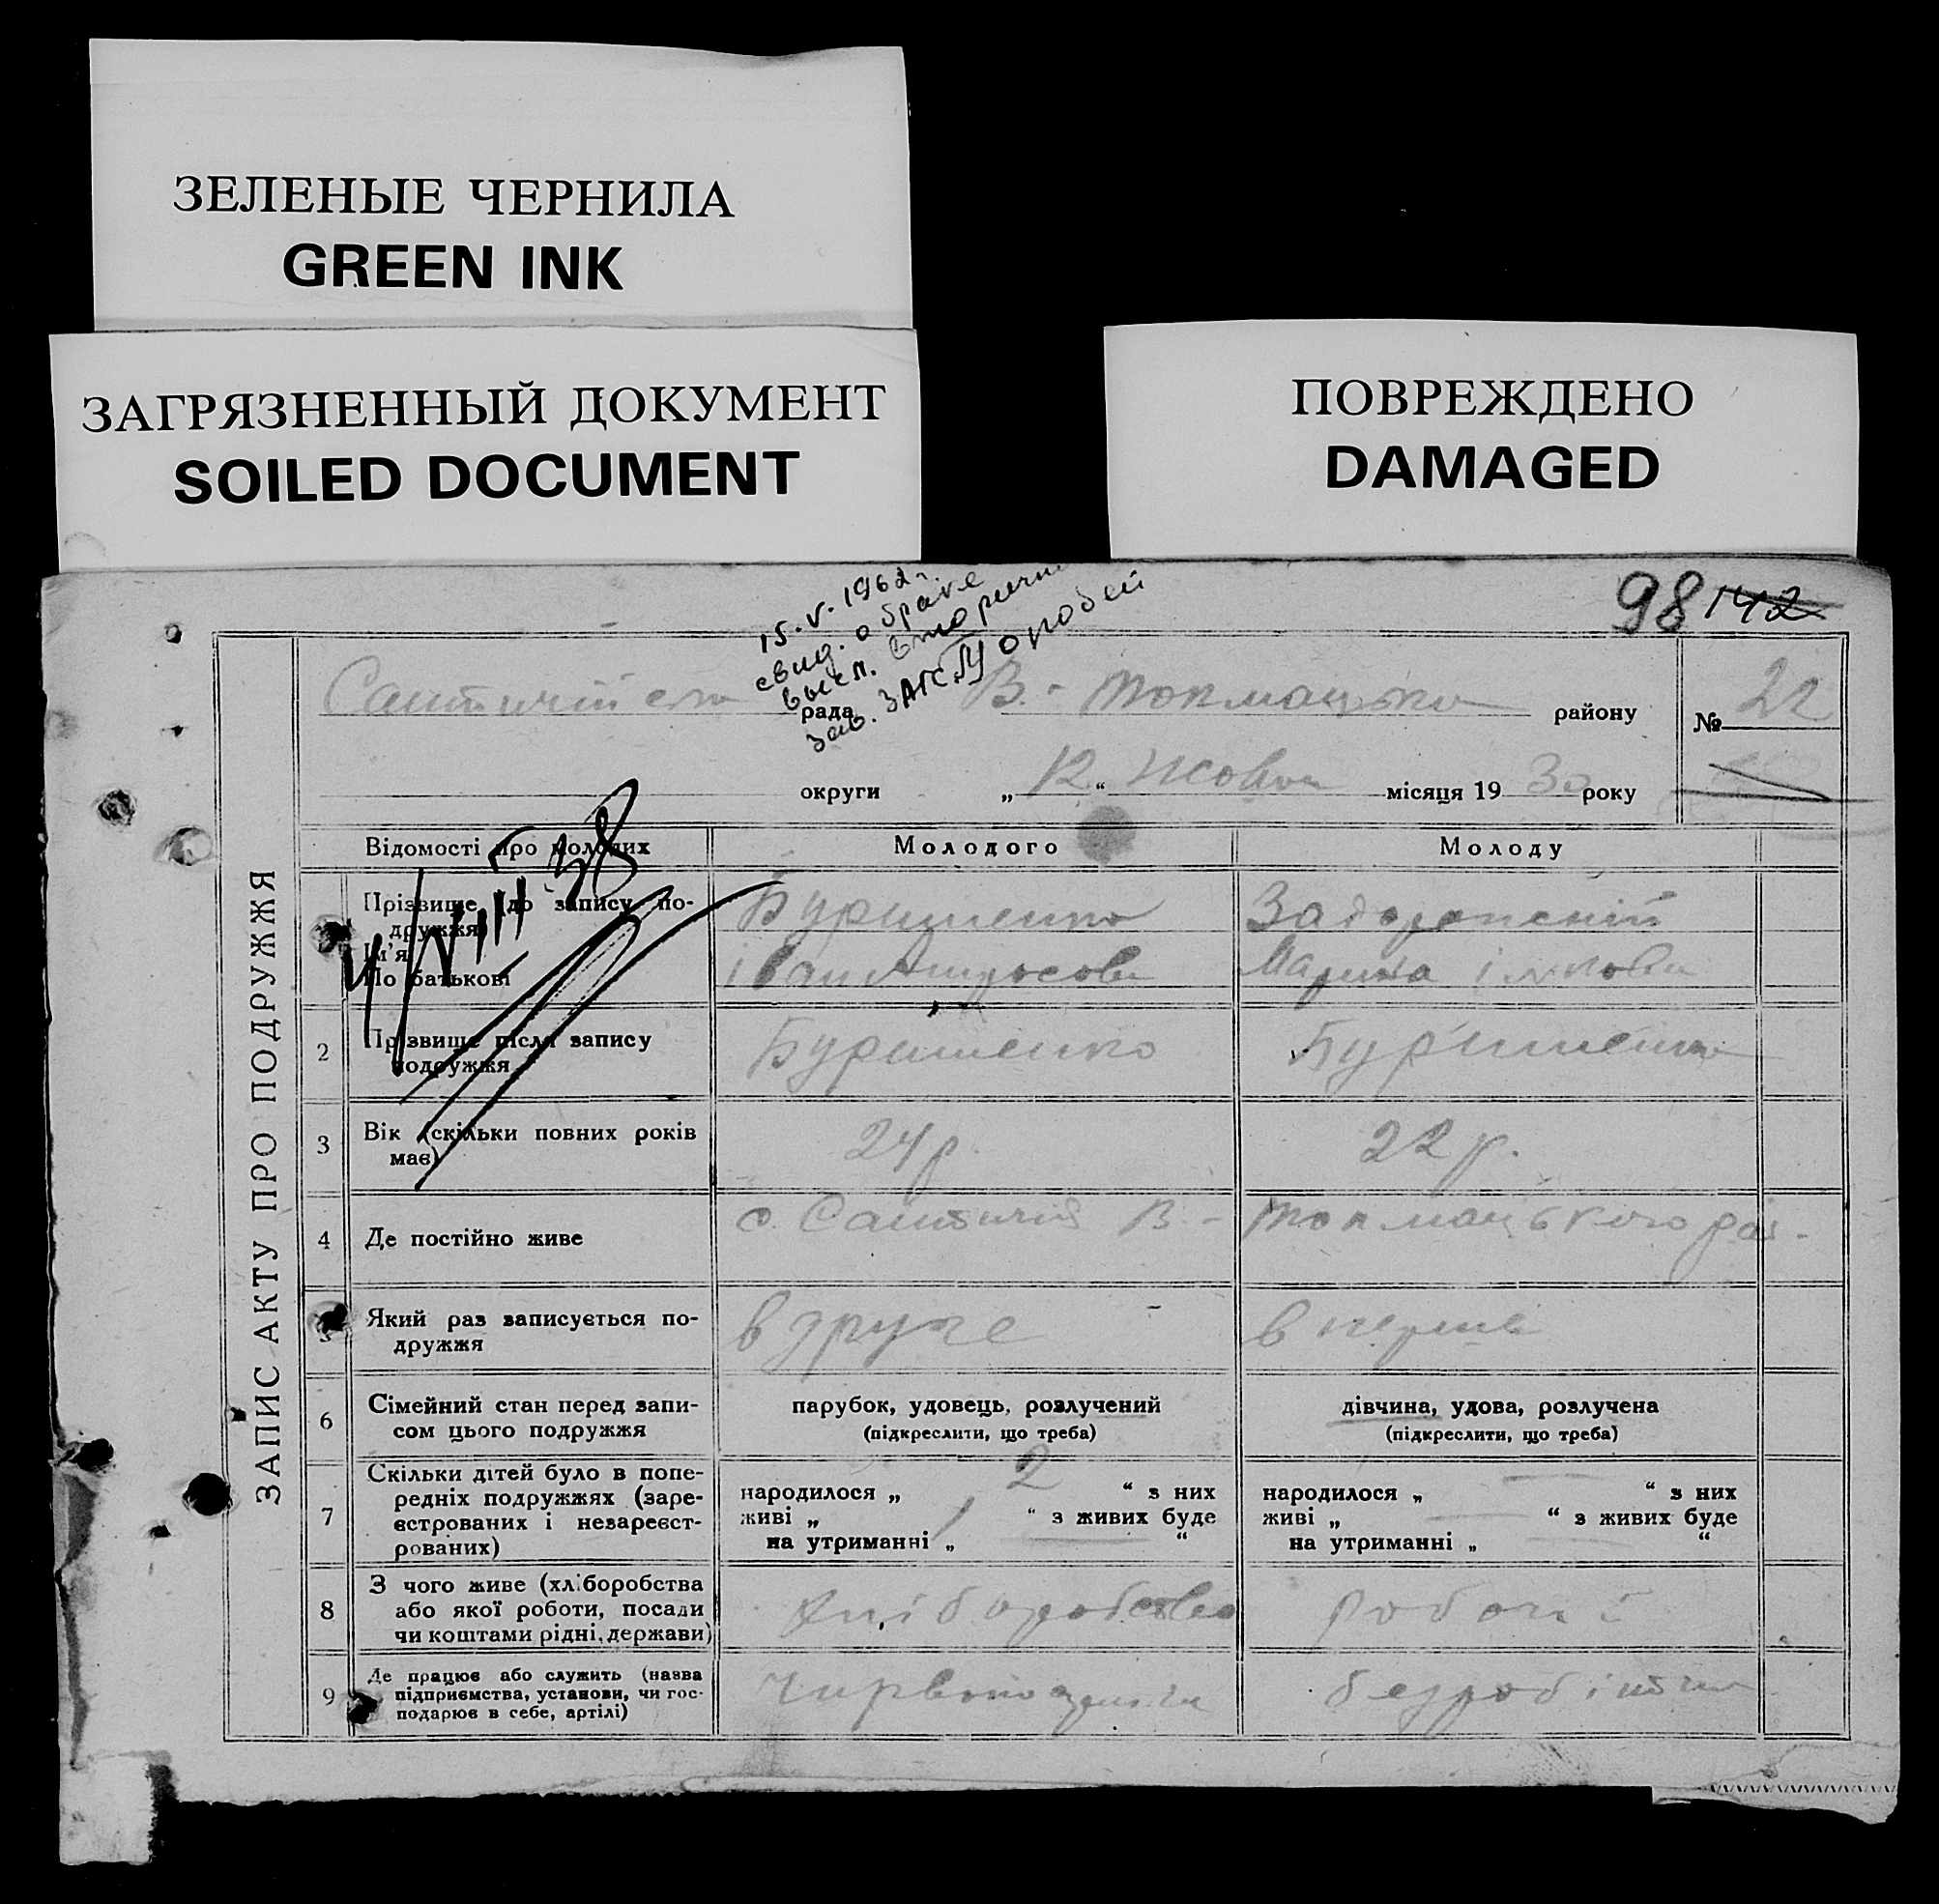 ЗЕЛЕНЫЕ ЧЕРНИЛА
GREEN INK
ЗАГРЯЗНЕННЫЙ ДОКУМЕНТ
SOILED DOCUMENT
ПОВРЕЖДЕНО
DAMAGED
98 142
15.V.1962 г.
свид. о браке
высл.
зав. ЗАГС
рада В.-Токмацько району № 22
округи „ 12 “ Жовтн місяця 19 30 року
ЗАПИС АКТУ ПРО ПОДРУЖЖЯ
Відомості про молодих Молодого Молоду
Прізвище (до запису по-
дружжя)
Ім'я
По батькові
Буришенко
Іван
Марина
2 Прізвище після запису
подружжя
Буришенко Буришенко
3 Вік (скільки повних років
має)
24 р. 22 р.
4 Де постійно живе
с. В.-Токмацького рай.
5 Який раз записується по-
дружжя
вдруге вперше
6 Сімейний стан перед запи-
сом цього подружжя
парубок, удовець, розлучений
(підкреслити, що треба)
дівчина, удова, розлучена
(підкреслити, що треба)
7 Скільки дітей було в попе-
редніх подружжях (заре-
єстрованих і незареєст-
рованих)
народилося „ 2 “ з них
живі „ 1 “ з живих буде
на утриманні „ — “
народилося „ — “ з них
живі „ — “ з живих буде
на утриманні „ — “
8 З чого живе (хліборобства
або якої роботи, посади
чи коштами рідні, держави)
хліборобство
9 Де працює або служить (назва
підприємства, установи, чи гос-
подарює в себе, артілі)